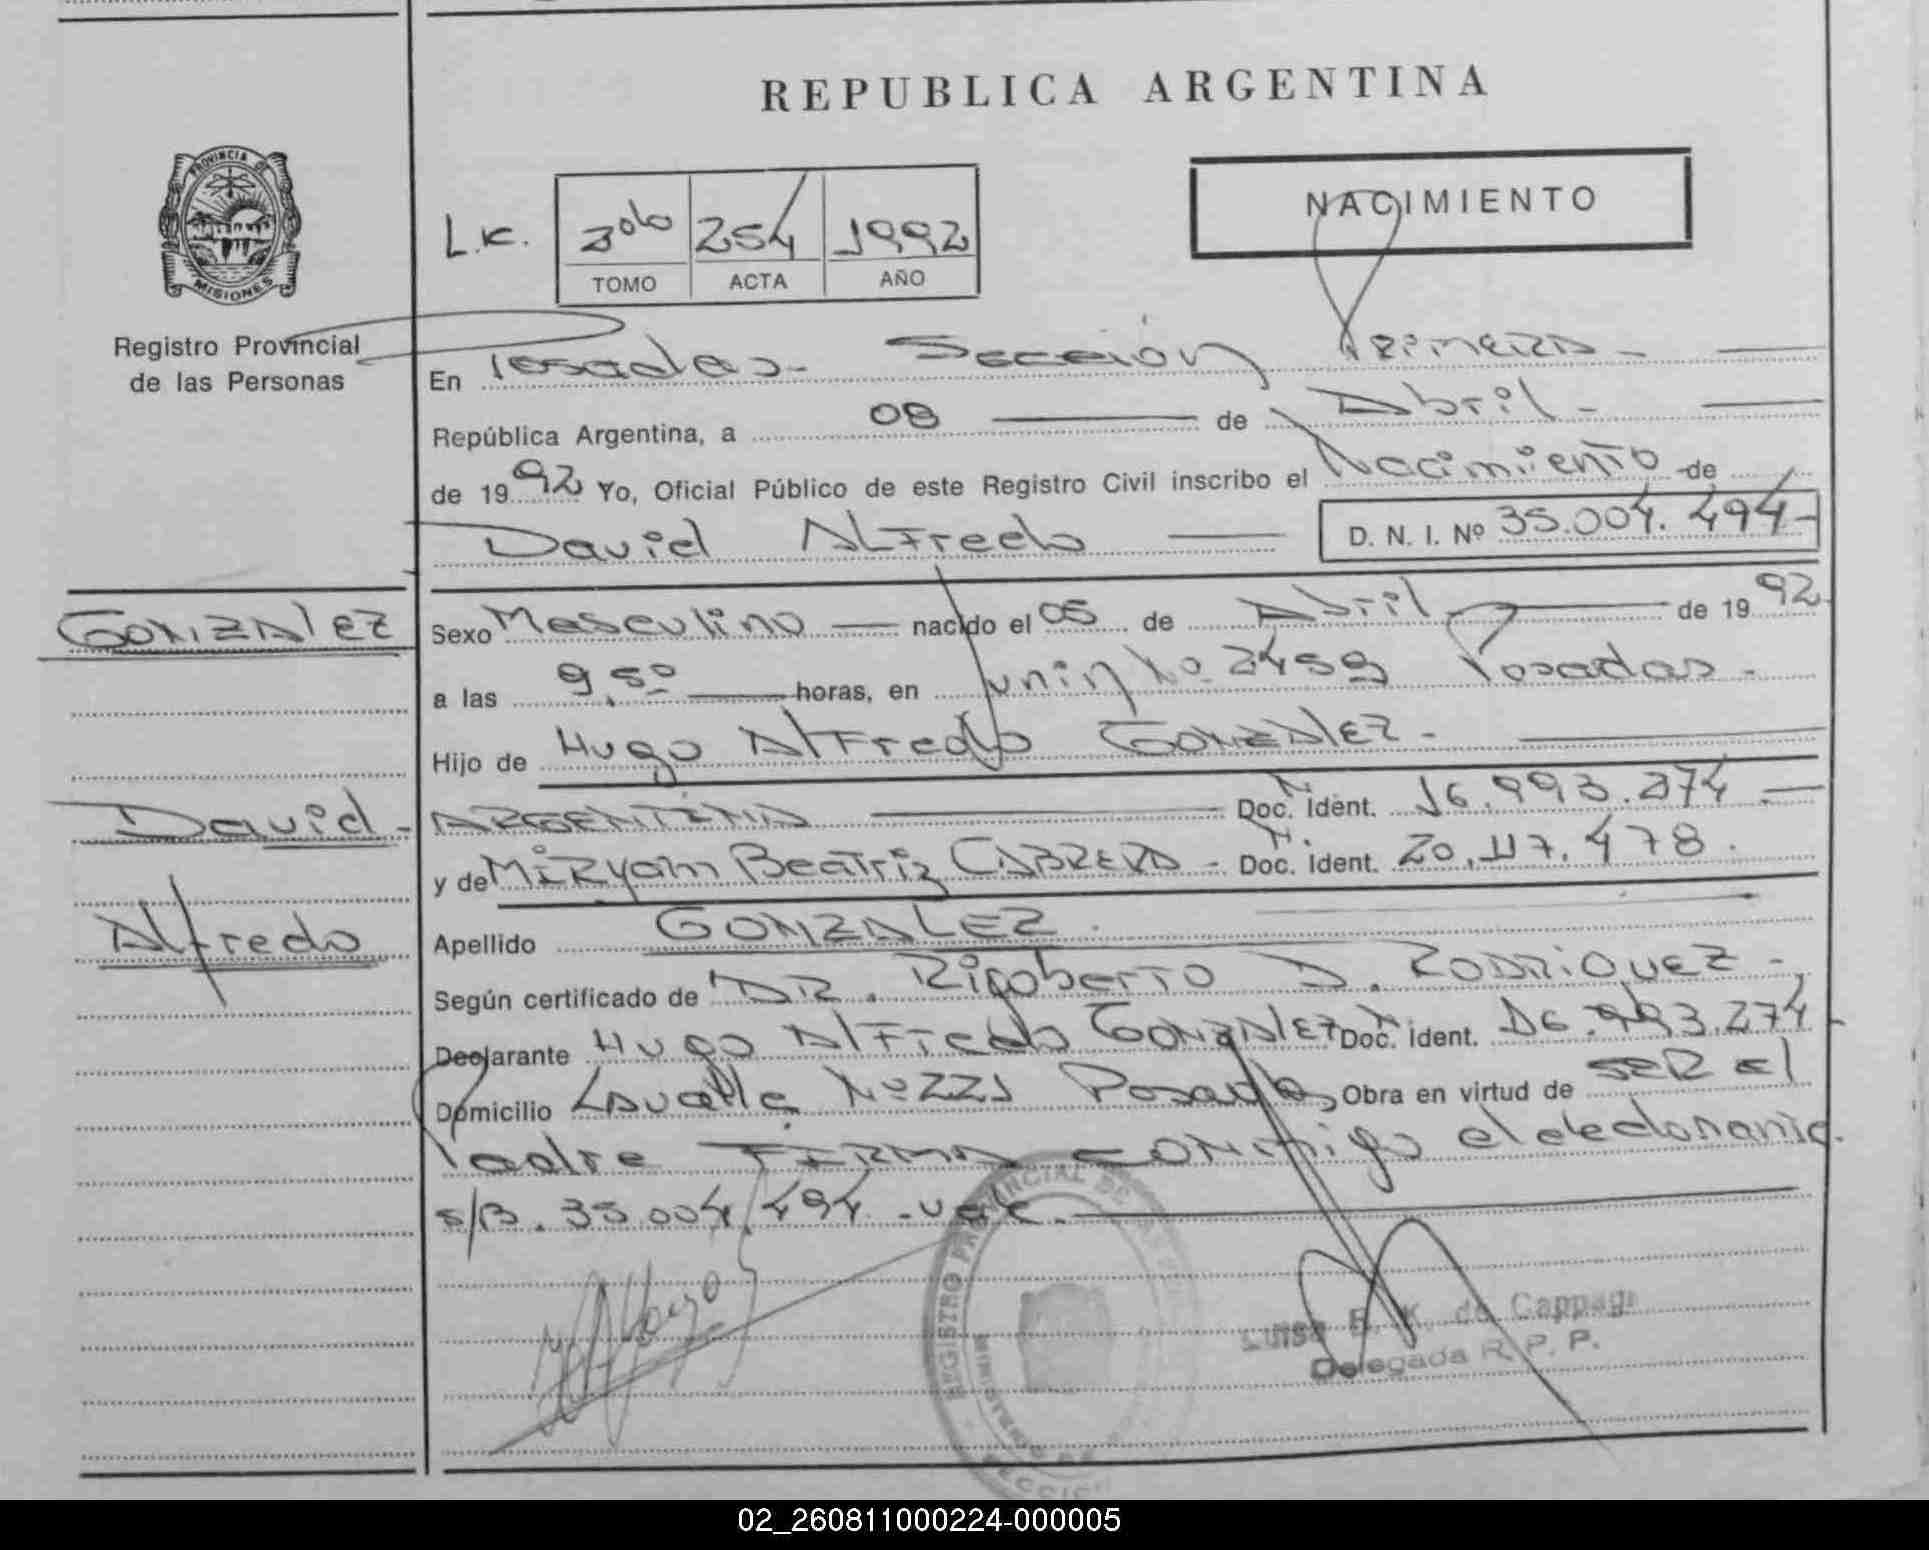 REPUBLICA ARGENTINA
PROVINCIA DE
MISIONES
Registro Provincial
de las Personas
NACIMIENTO
L.c. 3º bo 254 1992
TOMO ACTA AÑO
En Posadas - Sección Primera -
República Argentina, a 08 de Abril -
de 1992 Yo, Oficial Público de este Registro Civil inscribo el Nacimiento de
David ALFredo D. N. I. Nº 35.004.494-
GONZALEZ
Sexo Masculino nacido el 05 de Abril de 1992
a las 9,50 horas, en Junin No. 2459 Posadas -
Hijo de Hugo AlFredo GONZALEZ -
David -
ARGENTINA Doc. Ident. 16.993.274 -
y de MiRyam BeaTriz CABRERA - Doc. Ident. 20.117.478.
Alfredo
Apellido GONZALEZ.
Según certificado de DR. RigoberTO D. RODRIGUEZ -
Declarante Hugo AlFredo GONZALEZ Doc. Ident. 16.993.274 -
Domicilio Lavalle Nº 221 Posadas, Obra en virtud de SER el
Padre FIRMA CONmigo el declarante.
s/B. 35.004.494 - vale.
REGISTRO PROVINCIAL DE LAS
MINISTERIO DE
SECCION
Luisa E. K. de Cappagi
Delegada R. P. P.
02_260811000224-000005